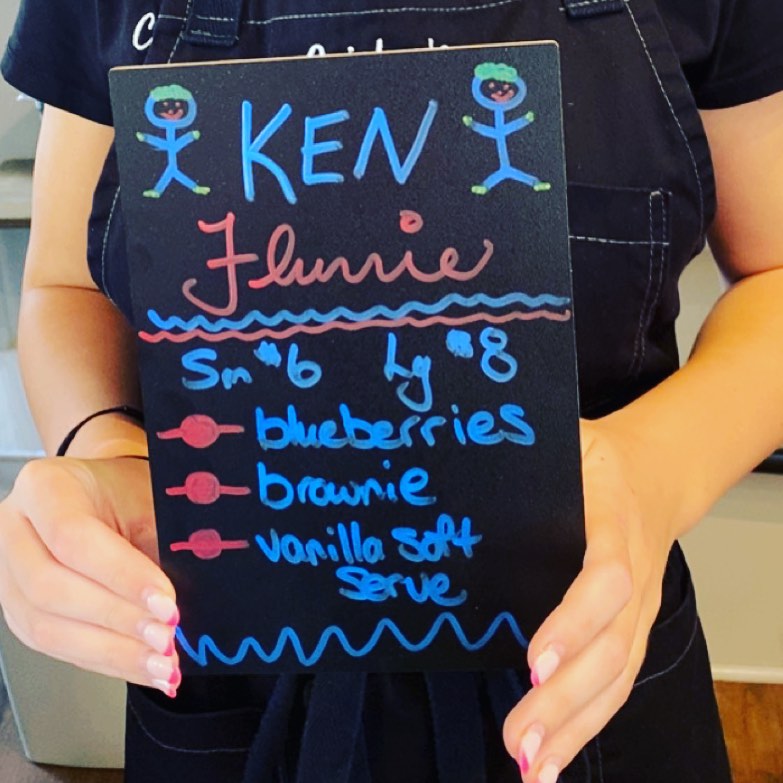 KEN
Flurrie
Sm $6 Lg $8
blueberries
brownie
vanilla soft
serve